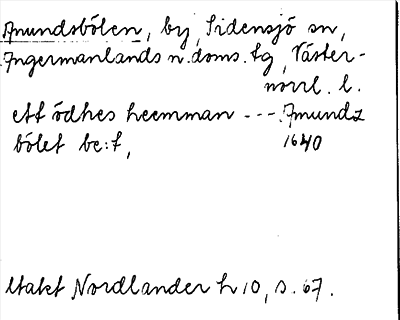 Amundsbölen, by, Sidensjö sn,
Ingermanlands n. doms. tg, Väster-
norrl. l.
ett ödhes heemman --- Amundz
bölet be:t, 1640
Utakt Nordlander h 10, s. 67.